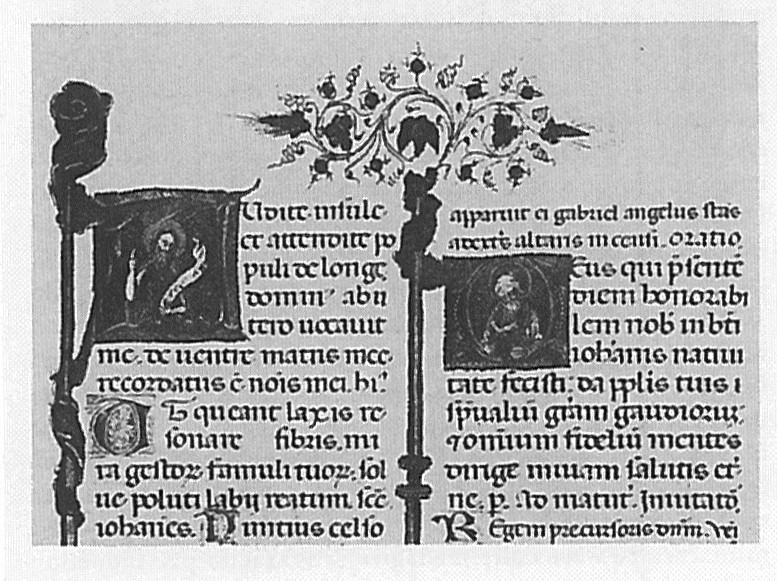 Audite insule
et attendite po
puli de longe
dominꝰ ab u
tero uocauit
me. de uentre matris mee
recordatus ē nois mei. hi'.
Ut queant laxis re
sonare fibris. mi
ra gestoꝝ famuli tuoꝝ. sol
ue poluti labij reatum. scē
iohannes. Nuntius celso
apparuit ei gabriel angelus stās
a dextˢ altaris incensi. oratio.
Deus qui p̄sentē
diem honorabi
lem nob' in bt̄i
iohānis natiui
tate fecisti: da pp̄lis tuis
sp̄ualiū grām gaudioruꝫ:
⁊ omnium fideliū mentes
dirige in uiam salutis et'
ne. p. Ad matut'. Inuitatō.
Regem precursoris dnm. Uēi